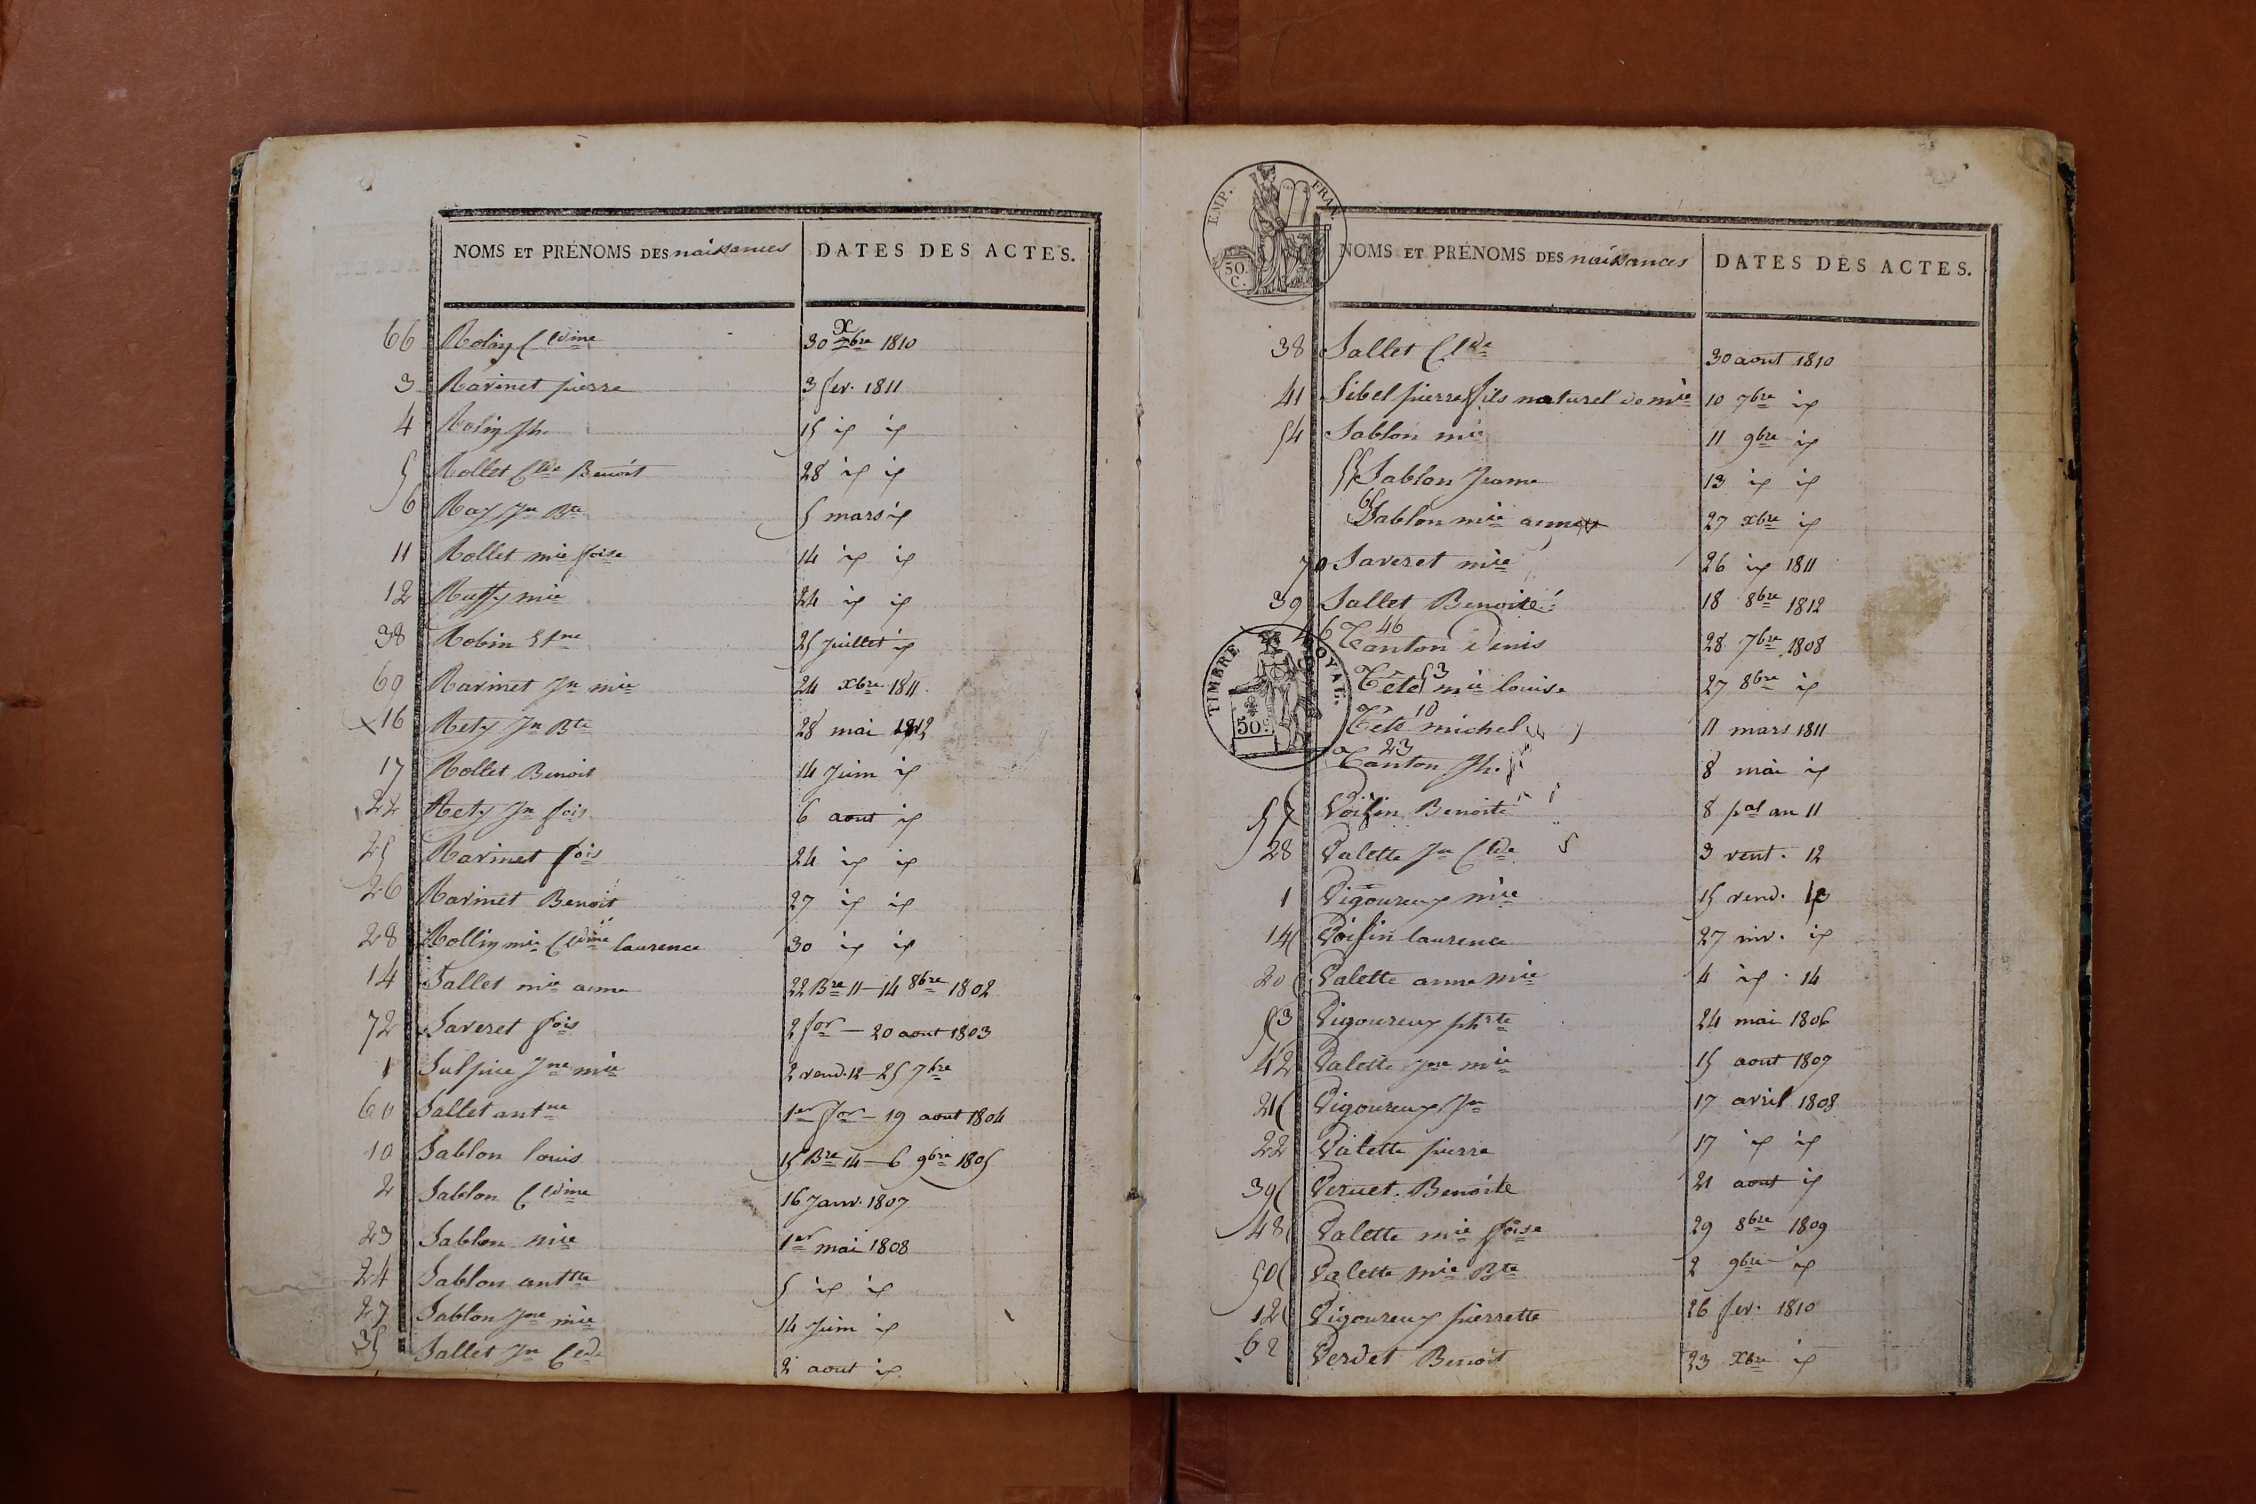 NOMS ET PRÉNOMS DES naissances DATES DES ACTES.
66 Rolin Cldine 30 xbre 1810
3 Ravinet pierre 3 fev. 1811
4 Rolin Jh. 15 id id
5 Rollet Clde Benoit 28 id id
6 Ray Jn Bte 5 mars id
11 Rollet mie foise 14 id id
12 Ruffy mie 24 id id
38 Robin Etne 25 Juillet id
69 Ravinet Jn mie 24 xbre 1811
16 Rety Jn Bte 28 mai 1812
17 Rollet Benoit 14 Juin id
22 Rety Jn fois 6 aout id
25 Ravinet fois 24 id id
26 Ravinet Benoit 27 id id
28 Rollin mie Cldine laurence 30 id id
14 Sallet mie anne 22 Bre 11 — 14 8bre 1802
72 Saveret fois 2 for — 20 aout 1803
1 Sulpice Jne mie 2 vend. 12 — 25 7bre
60 Sallet antne 1er for — 19 aout 1804
10 Sablon louis 15 Bre 14 — 6 9bre 1805
2 Sablon Cldine 16 Janv. 1807
23 Sablon mie 1er mai 1808
24 Sablon antte 5 id id
27 Sablon Jne mie 14 Juin id
35 Sallet Jn Clde 2 aout id
EMP. FRAN.
50. C.
NOMS ET PRÉNOMS DES naissances DATES DES ACTES.
38 Sallet Clde 30 aout 1810
41 Sibel pierre fils naturel de mie 10 7bre id
54 Sablon mie 11 9bre id
55 Sablon Jeanne 13 id id
Sablon mie anne 27 xbre id
70 Saveret mie 26 id 1811
39 Sallet Benoite 18 8bre 1812
46 46 Tanton Denis 28 7bre 1808
TIMBRE ROYAL.
50 c
Tête 53 mie louise 27 8bre id
Tête 10 michel 11 mars 1811
23 Tanton Jh. 8 mai id
57 Voisin Benoite 8 pal an 11
28 Valette Jn Clde 3 vent. 12
1 Vigoureux mie 15 vend. 13
14 Voisin laurence 27 niv. id
20 Valette anne mie 4 id 14
53 Vigoureux phrte 24 mai 1806
42 Valette Jne mie 15 aout 1807
21 Vigoureux Jn 17 avril 1808
22 Valette pierre 17 id id
39 Vernet Benoite 21 aout id
48 Valette mie foise 29 8bre 1809
50 Valette mie Bte 2 9bre id
12 Vigoureux pierrette 26 fev. 1810
62 Verdet Benoit 23 xbre id